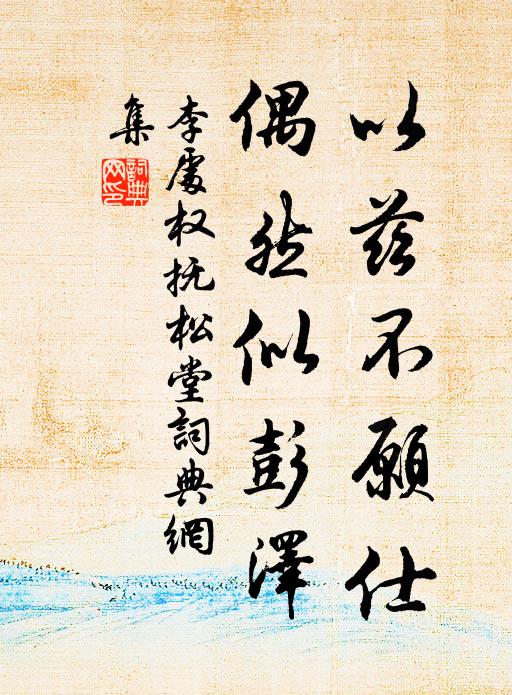 以茲不願仕
偶然似彭澤
李處权抚松堂詞典網
集
詞典网印